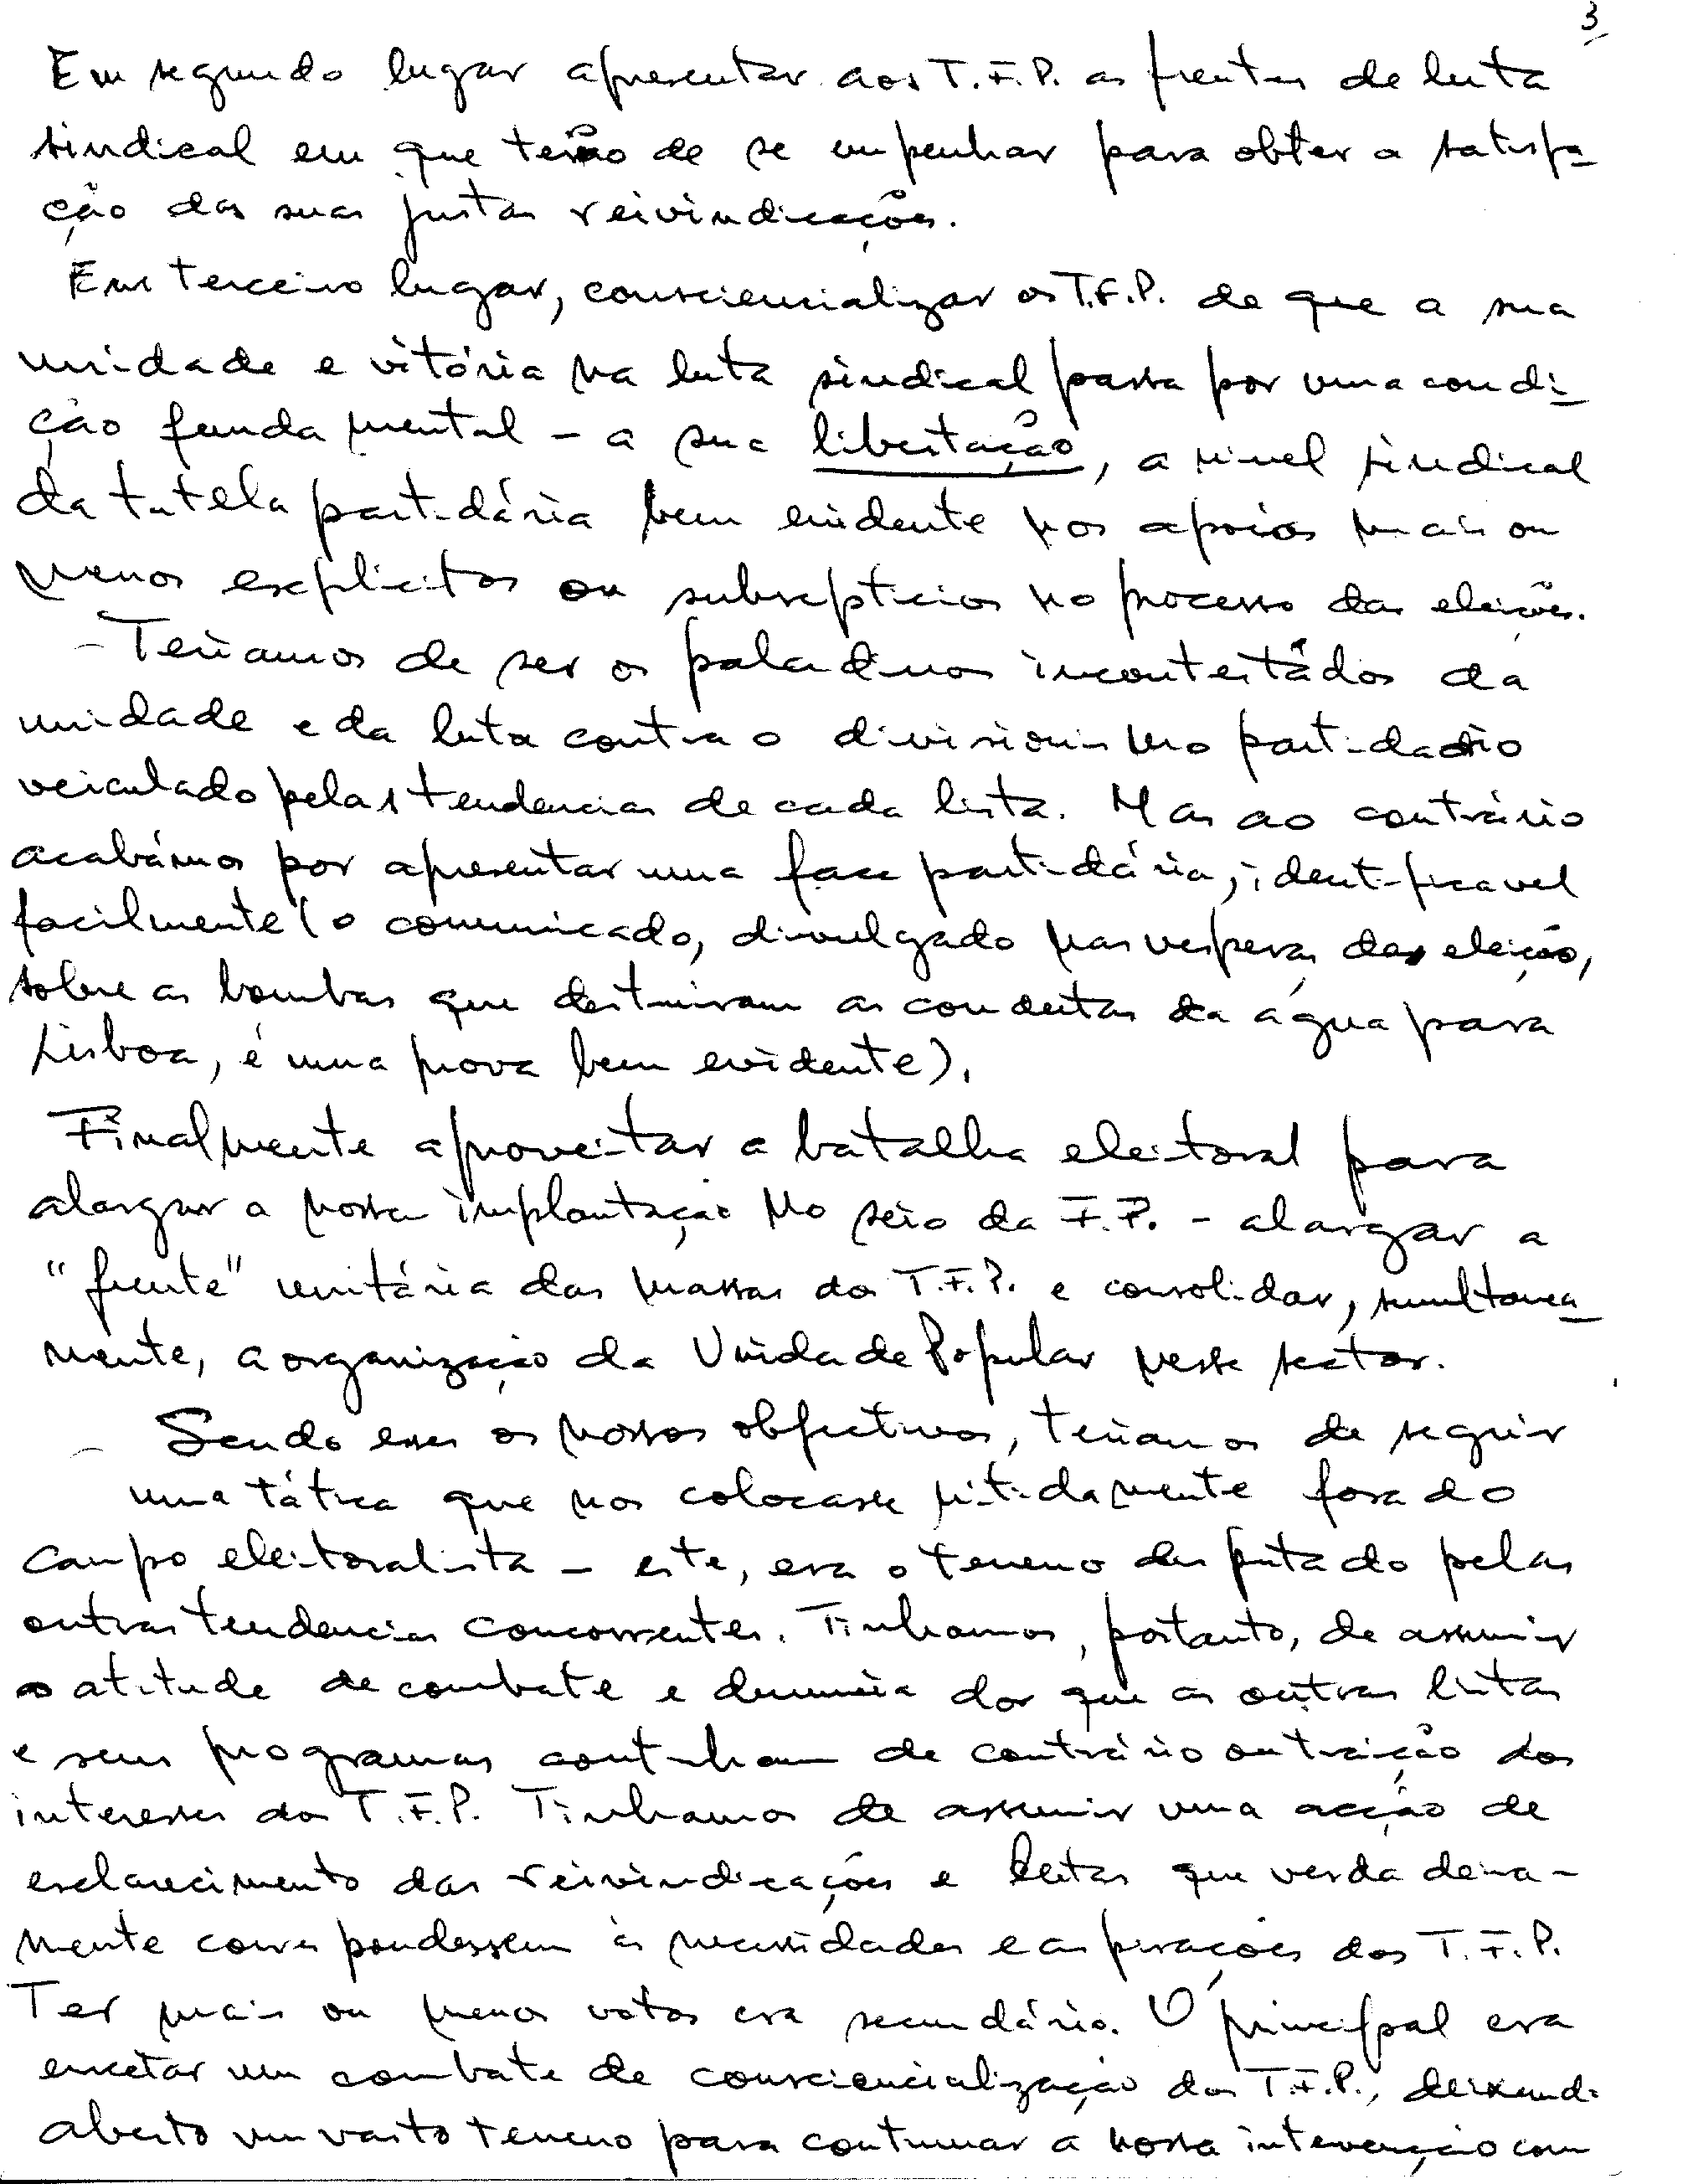 3
Em segundo lugar apresentar aos T.F.P. as frentes de luta
sindical em que terão de se empenhar para obter a satisfa-
ção das suas justas reivindicações.
Em terceiro lugar, consciencializar os T.F.P. de que a sua
unidade e vitória na luta sindical passa por uma condi-
ção fundamental - a sua libertação, a nivel sindical
da tutela partidária bem evidente nos apoios mais ou
menos explicitos ou subrepticios no processo das eleições.
- Teriamos de ser os paladinos incontestádos da
unidade e da luta contra o divisionismo partidario
veiculado pelas tendencias de cada lista. Mas ao contrário
acabámos por apresentar uma face partidária, identificavel
facilmente (o comunicado, divulgado nas vesperas das eleição,
sobre as bombas que destruiram as condutas da água para
Lisboa, é uma prova bem evidente).
Finalmente aproveitar a batalha eleitoral para
alargar a nossa implantação no seio da F.P. - alargar a
"frente" unitária das massas dos T.F.P. e consolidar, simultanea-
mente, a organização da Unidade Popular nesse sector.
- Sendo esses os nossos objectivos, teriamos de seguir
uma tática que nos colocasse nitidamente fora do
campo eleitoralista - este, era o terreno disputado pelas
outras tendencias concorrentes. Tinhamos, portanto, de assumir
a atitude de combate e denuncia do que as outras listas
e seus programas continham de contrário ou traição dos
interesses dos T.F.P. Tinhamos de assumir uma acção de
esclarecimento das reivindicações e lutas que verdadeira-
mente correspondessem às necessidades e aspirações dos T.F.P.
Ter mais ou menos votos era secundário. O principal era
encetar um combate de consciencialização dos T.F.P., deixando
aberto um vasto terreno para continuar a nossa intervenção com